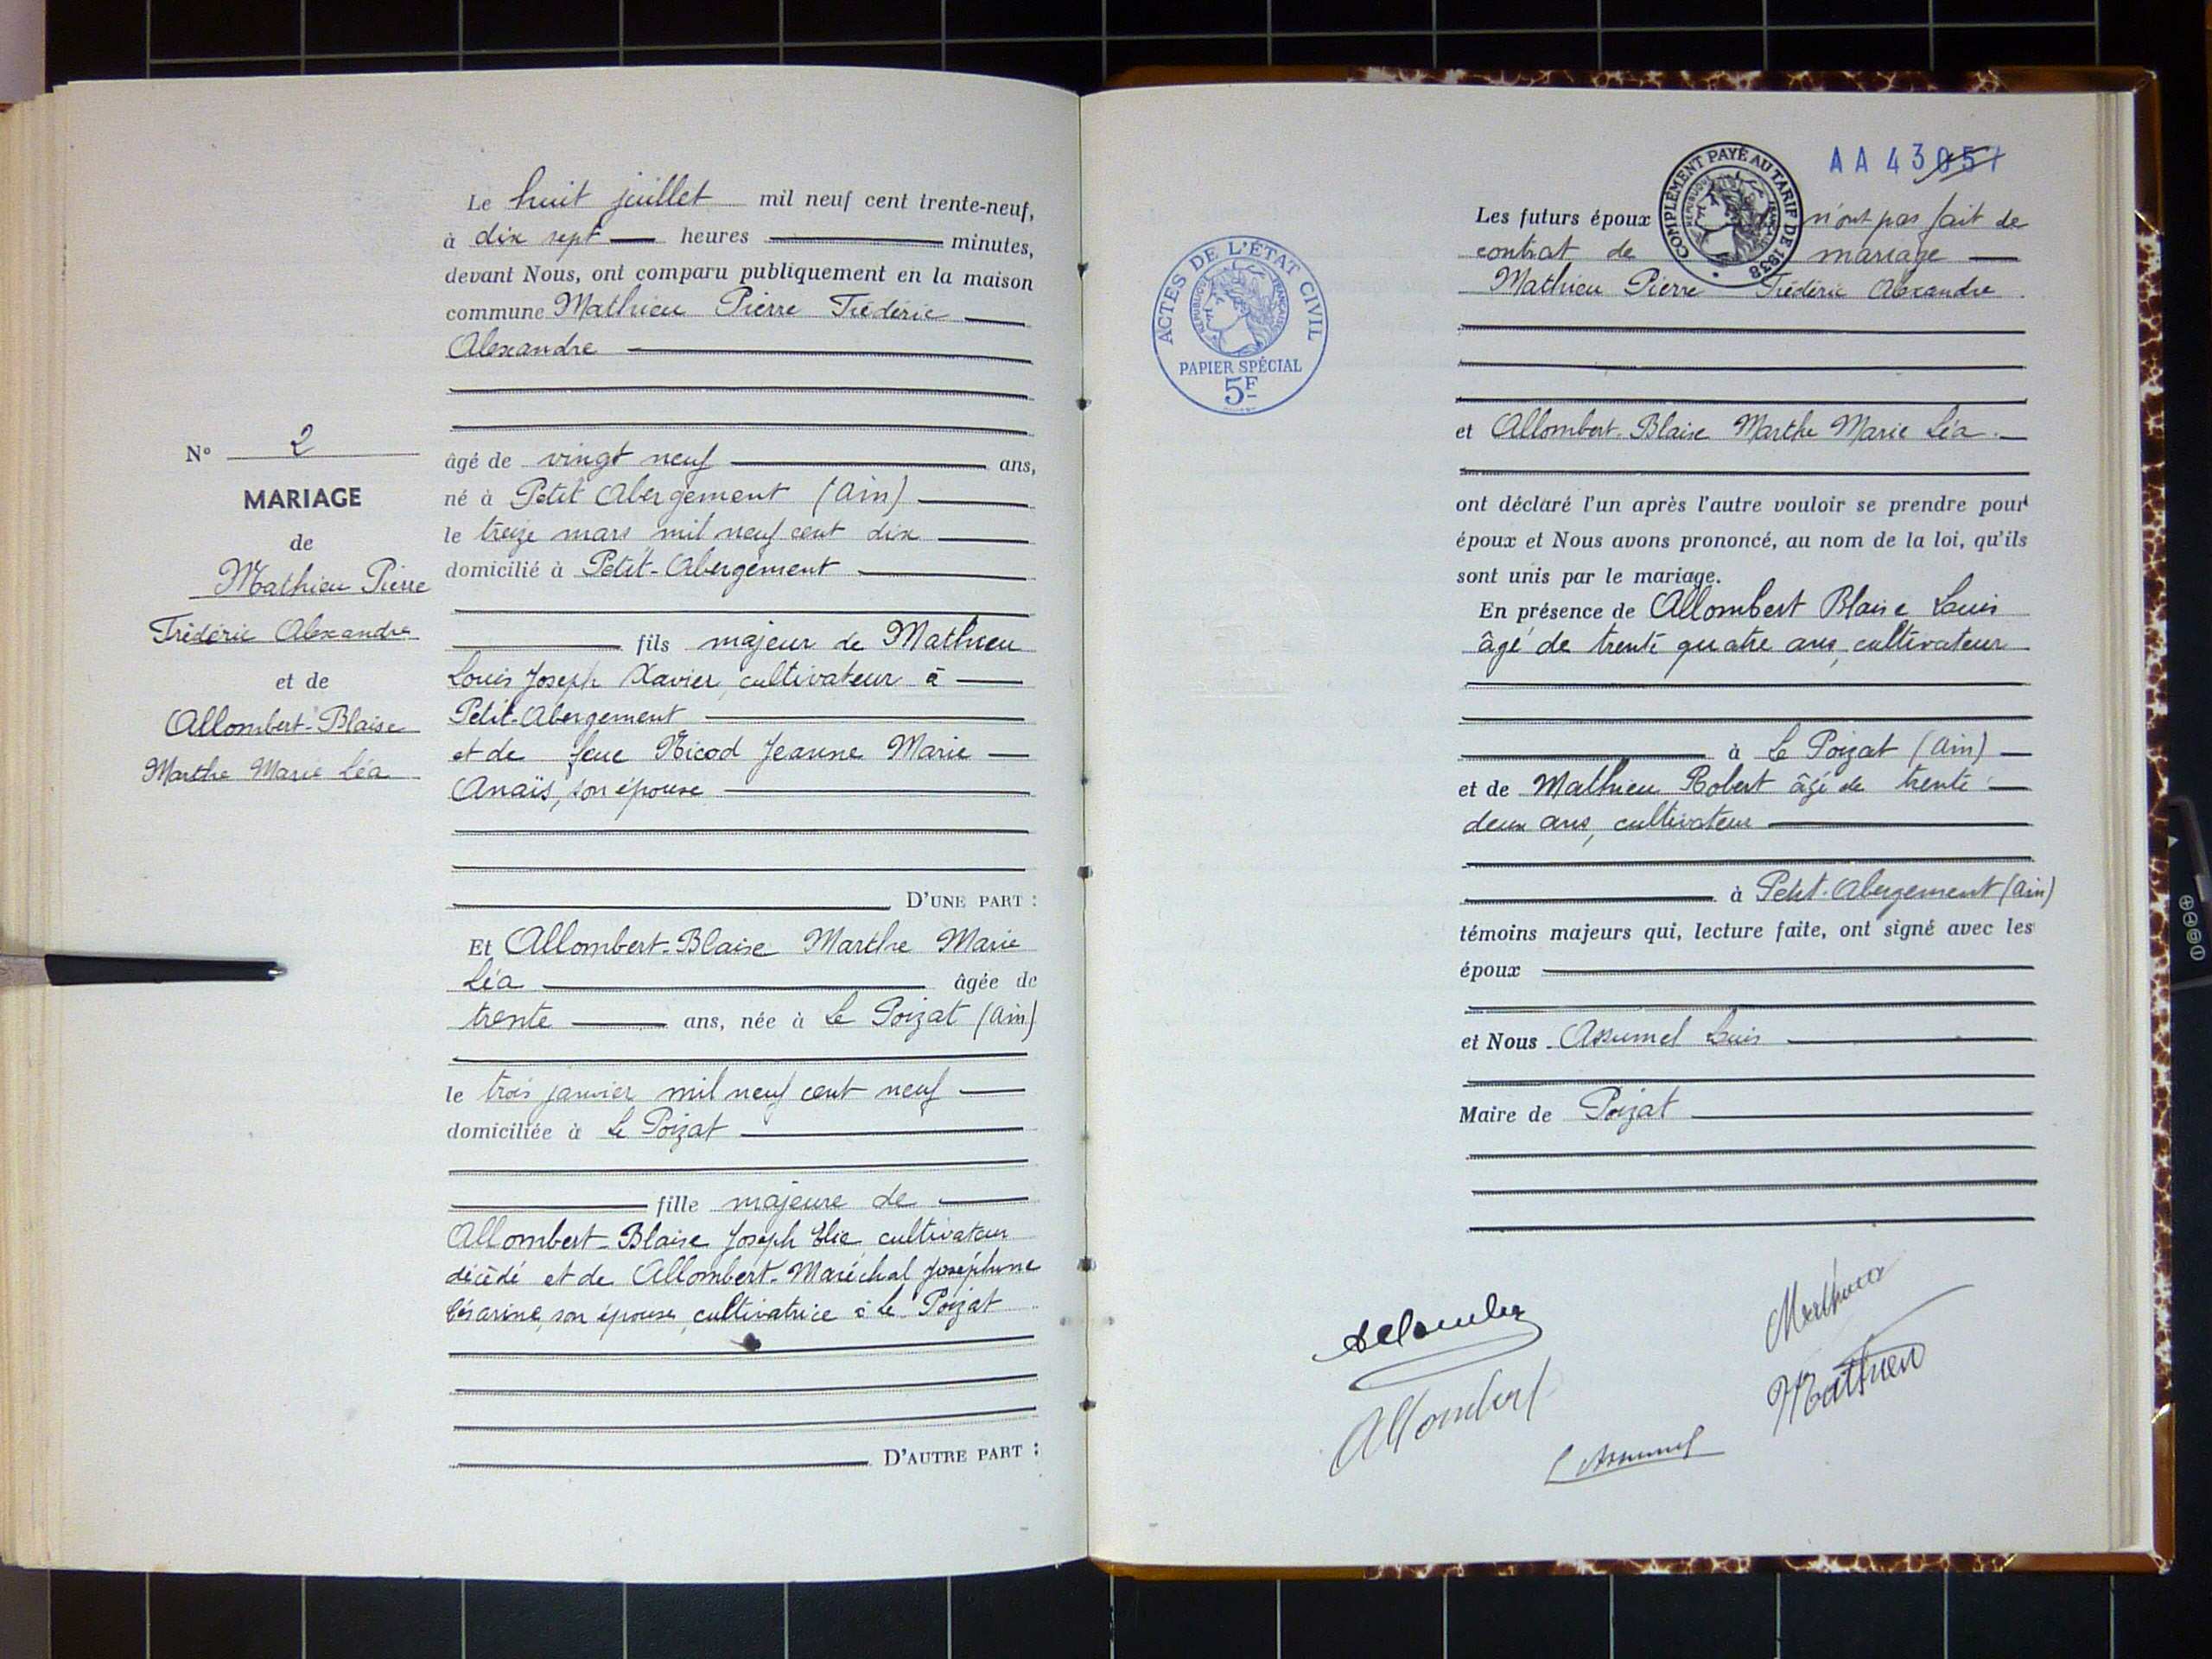 Le huit juillet mil neuf cent trente-neuf,
à dix sept heures minutes,
devant Nous, ont comparu publiquement en la maison
commune Mathieu Pierre Frédéric
Alexandre
N° 2
MARIAGE
de
Mathieu Pierre
Frédéric Alexandre
et de
Allombert-Blaise
Marthe Marie Léa
âgé de vingt neuf ans,
né à Petit Abergement (Ain)
le treize mars mil neuf cent dix
domicilié à Petit-Abergement
fils majeur de Mathieu
Louis Joseph Xavier, cultivateur à
Petit-Abergement
et de feue Nicod Jeanne Marie
Anaïs, son épouse
D'UNE PART :
Et Allombert-Blaise Marthe Marie
Léa âgée de
trente ans, née à Le Poizat (Ain)
le trois janvier mil neuf cent neuf
domiciliée à Le Poizat
fille majeure de
Allombert-Blaise Joseph Elie cultivateur
décédé et de Allombert-Maréchal Joséphine
Césarine, son épouse, cultivatrice à Le Poizat
D'AUTRE PART :
ACTES DE L'ÉTAT CIVIL
RÉPUBLIQUE FRANÇAISE
PAPIER SPÉCIAL
5F
COMPLÉMENT PAYÉ AU TARIF DE 1938
AA 43051
Les futurs époux n'ont pas fait de
contrat de mariage
Mathieu Pierre Frédéric Alexandre
et Allombert-Blaise Marthe Marie Léa.
ont déclaré l'un après l'autre vouloir se prendre pour
époux et Nous avons prononcé, au nom de la loi, qu'ils
sont unis par le mariage.
En présence de Allombert Blaise Louis
âgé de trente quatre ans, cultivateur
à Le Poizat (Ain)
et de Mathieu Robert âgé de trente
deux ans, cultivateur
à Petit-Abergement (Ain)
témoins majeurs qui, lecture faite, ont signé avec les
époux
et Nous Assumel Louis
Maire de Poizat
Mathieu
Allombert
Mathieu
L Assumel